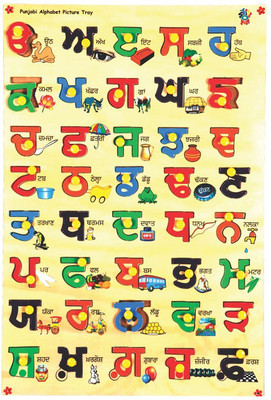 Punjabi Alphabet Picture Tray
ੳ ਊਠ ਅ ਅੱਖ ੲ ਇੱਟ ਸ ਸਬਜ਼ੀ ਹ ਹੱਥ
ਕ ਕਮਲ ਖ ਖੱਚਰ ਗ ਗਾਂ ਘ ਘਰ ਙ
ਚ ਚਮਚਾ ਛ ਛਤਰੀ ਜ ਜਗ ਝ ਝਜਰੀ ਞ
ਟ ਟਬ ਠ ਠੇਲ੍ਹਾ ਡ ਡੱਡੂ ਢ ਢੱਕਣ ਣ
ਤ ਤਰਖਾਣ ਥ ਥਰਮਸ ਦ ਦਵਾਤ ਧ ਧਨੁਖ ਨ ਨਲਕਾ
ਪ ਪਰ ਫ ਫਲ ਬ ਬਸ ਭ ਭਗਤ ਮ ਮਟਰ
ਯ ਯੱਕਾ ਰ ਰਥ ਲ ਲੱਡੂ ਵ ਵਰਖਾ ੜ
ਸ਼ ਸ਼ਹਦ ਖ਼ ਖ਼ਰਗੋਸ਼ ਗ਼ ਗ਼ੁਬਾਰਾ ਜ਼ ਜ਼ੰਜੀਰ ਫ਼ ਫ਼ਰਸ਼